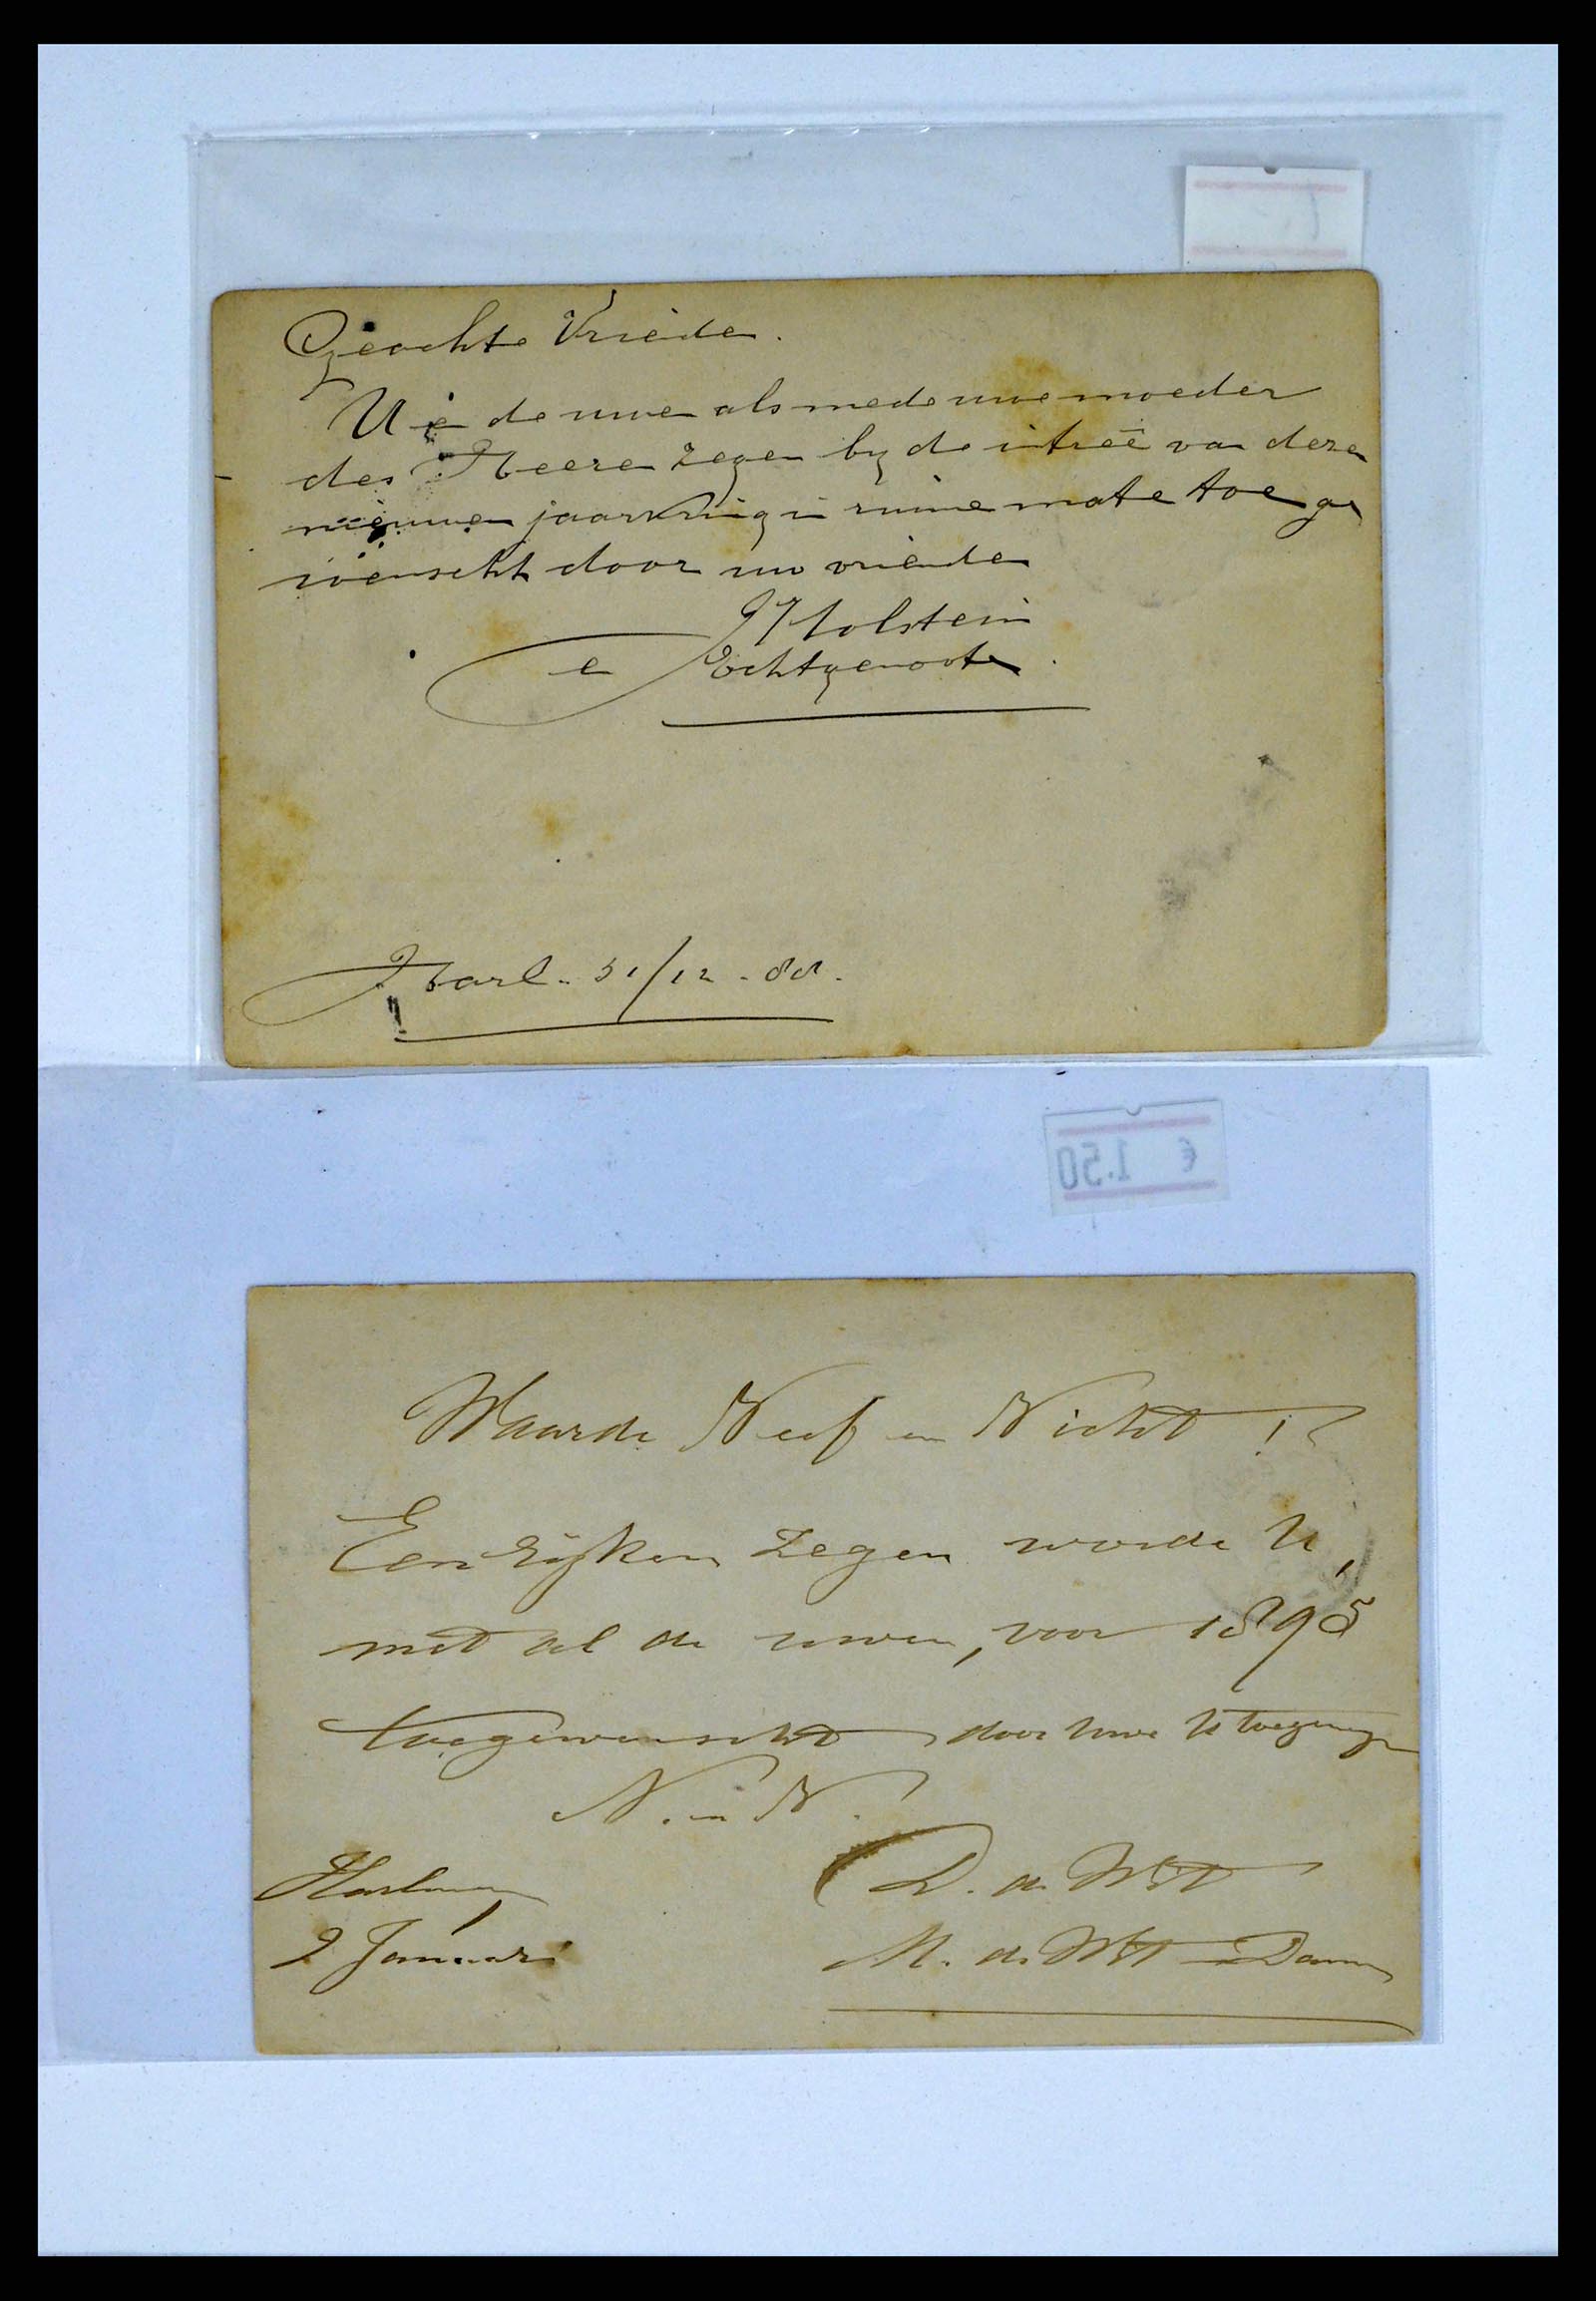 Geachte Vrienden.
U en de uwen als mede uwe moeder
des Heeren zegen by de intreê van dezen
nieuwen jaarkring in ruime mate toe ge
wenscht door uw vrienden
Holstein
en Echtgenoote.
Harl. 31/12 - 88.
€ 1.50
Waarde Neef en Nicht!
Een Rijken Zegen worde U,
met al de uwen, voor 1895
toegewenscht door Uwe U toegenegen
N. en N.
Harlingen
2 Januari
D. de Wit
M. de Wit Dam